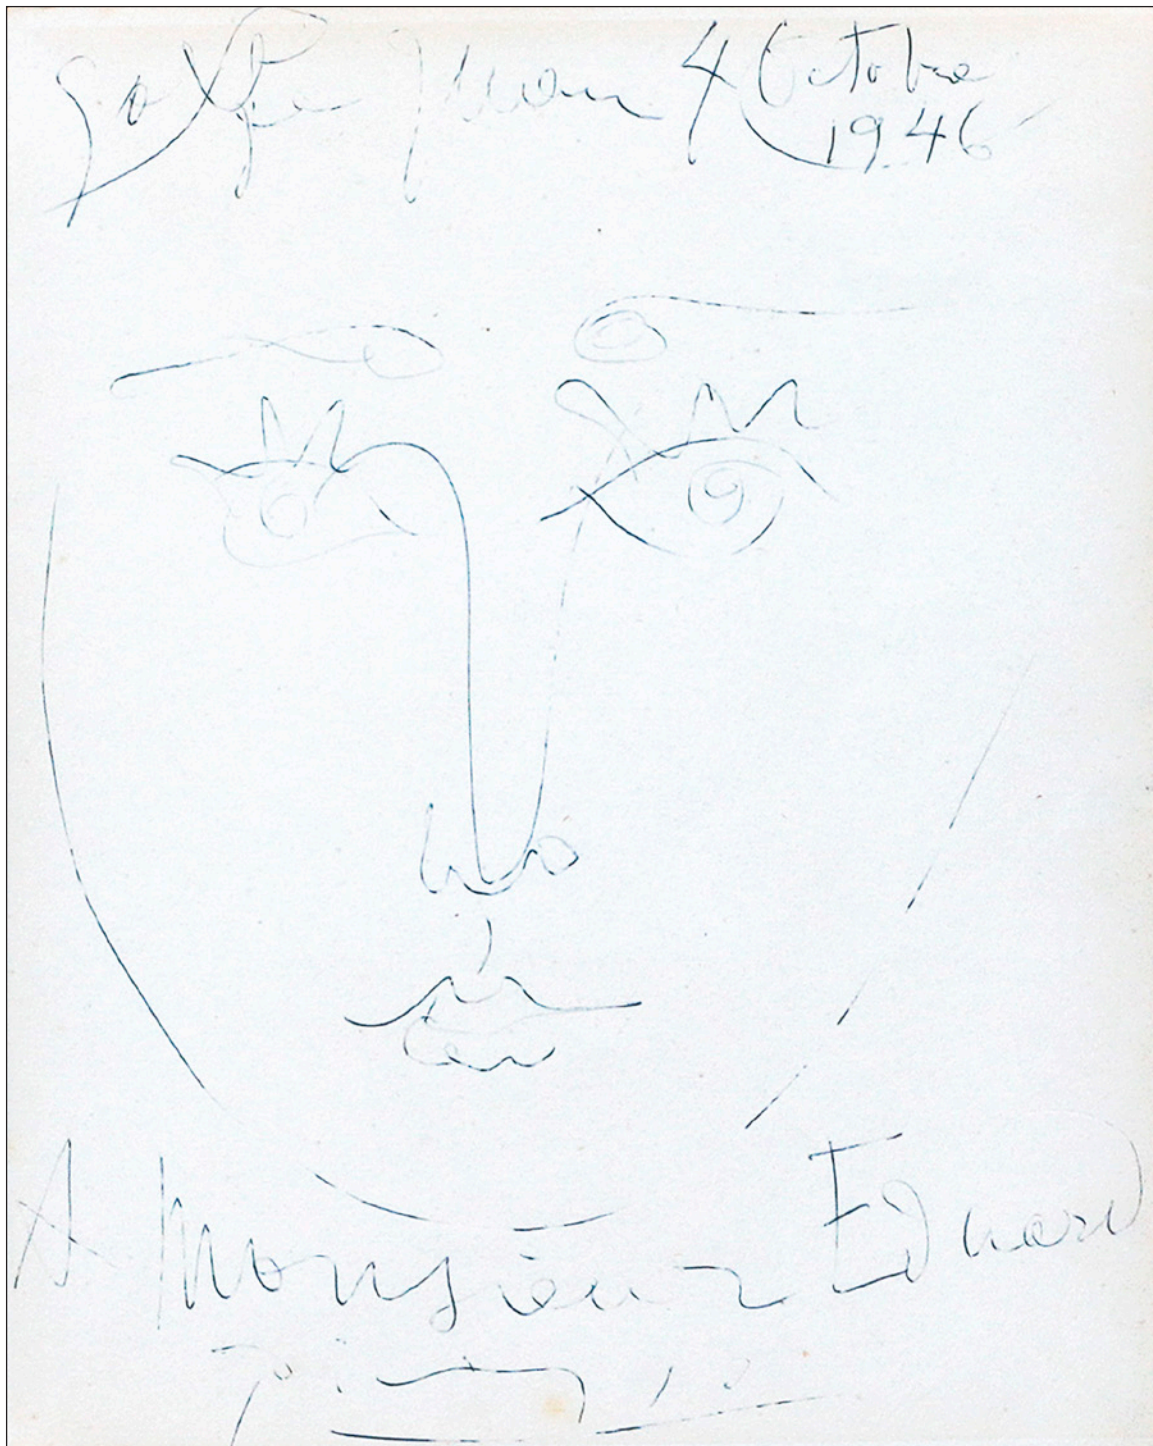 Golfe Juan 4 Octobre
1946
A Monsieur Eduard
Picasso